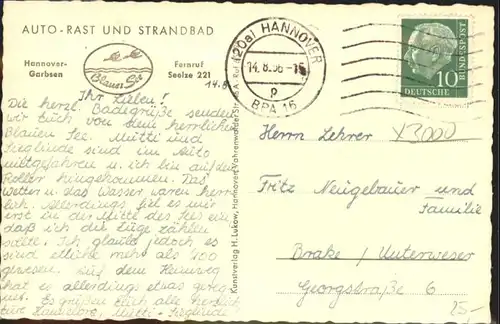 AUTO-RAST UND STRANDBAD
Hannover-
Garbsen
Blauer See
Fernruf
Seelze 221
14.8.
(20a) HANNOVER
14.8.56-15
p
BPA 15
10
DEUTSCHE
BUNDESPOST
Ihr Lieben!
Die herzl. Badegrüße senden
wir Euch von dem herrlichen
Blauen See. Mutti und
Sieglinde sind im Auto
mitgefahren u. ich bin auf dem
Roller hingekommen. Das
Wetter u. das Wasser waren herr-
lich. Allerdings fiel es mir
erst in der Mitte des Sees ein
daß ich die Züge zählen
sollte. Ich glaube jedoch es
sind etliche mehr als 400
gewesen. Auf dem Heimweg
hat es allerdings etwas gereg-
net. Es grüßen Euch alle herzlich
Eure Hannelore, Mutti - Sieglinde
Kunstverlag H. Lukow, Hannover, Vahrenwalder Str.
Herrn Lehrer
X3000
Fritz Neugebauer und
Familie
Brake / Unterweser
Georgstraße 6
25-